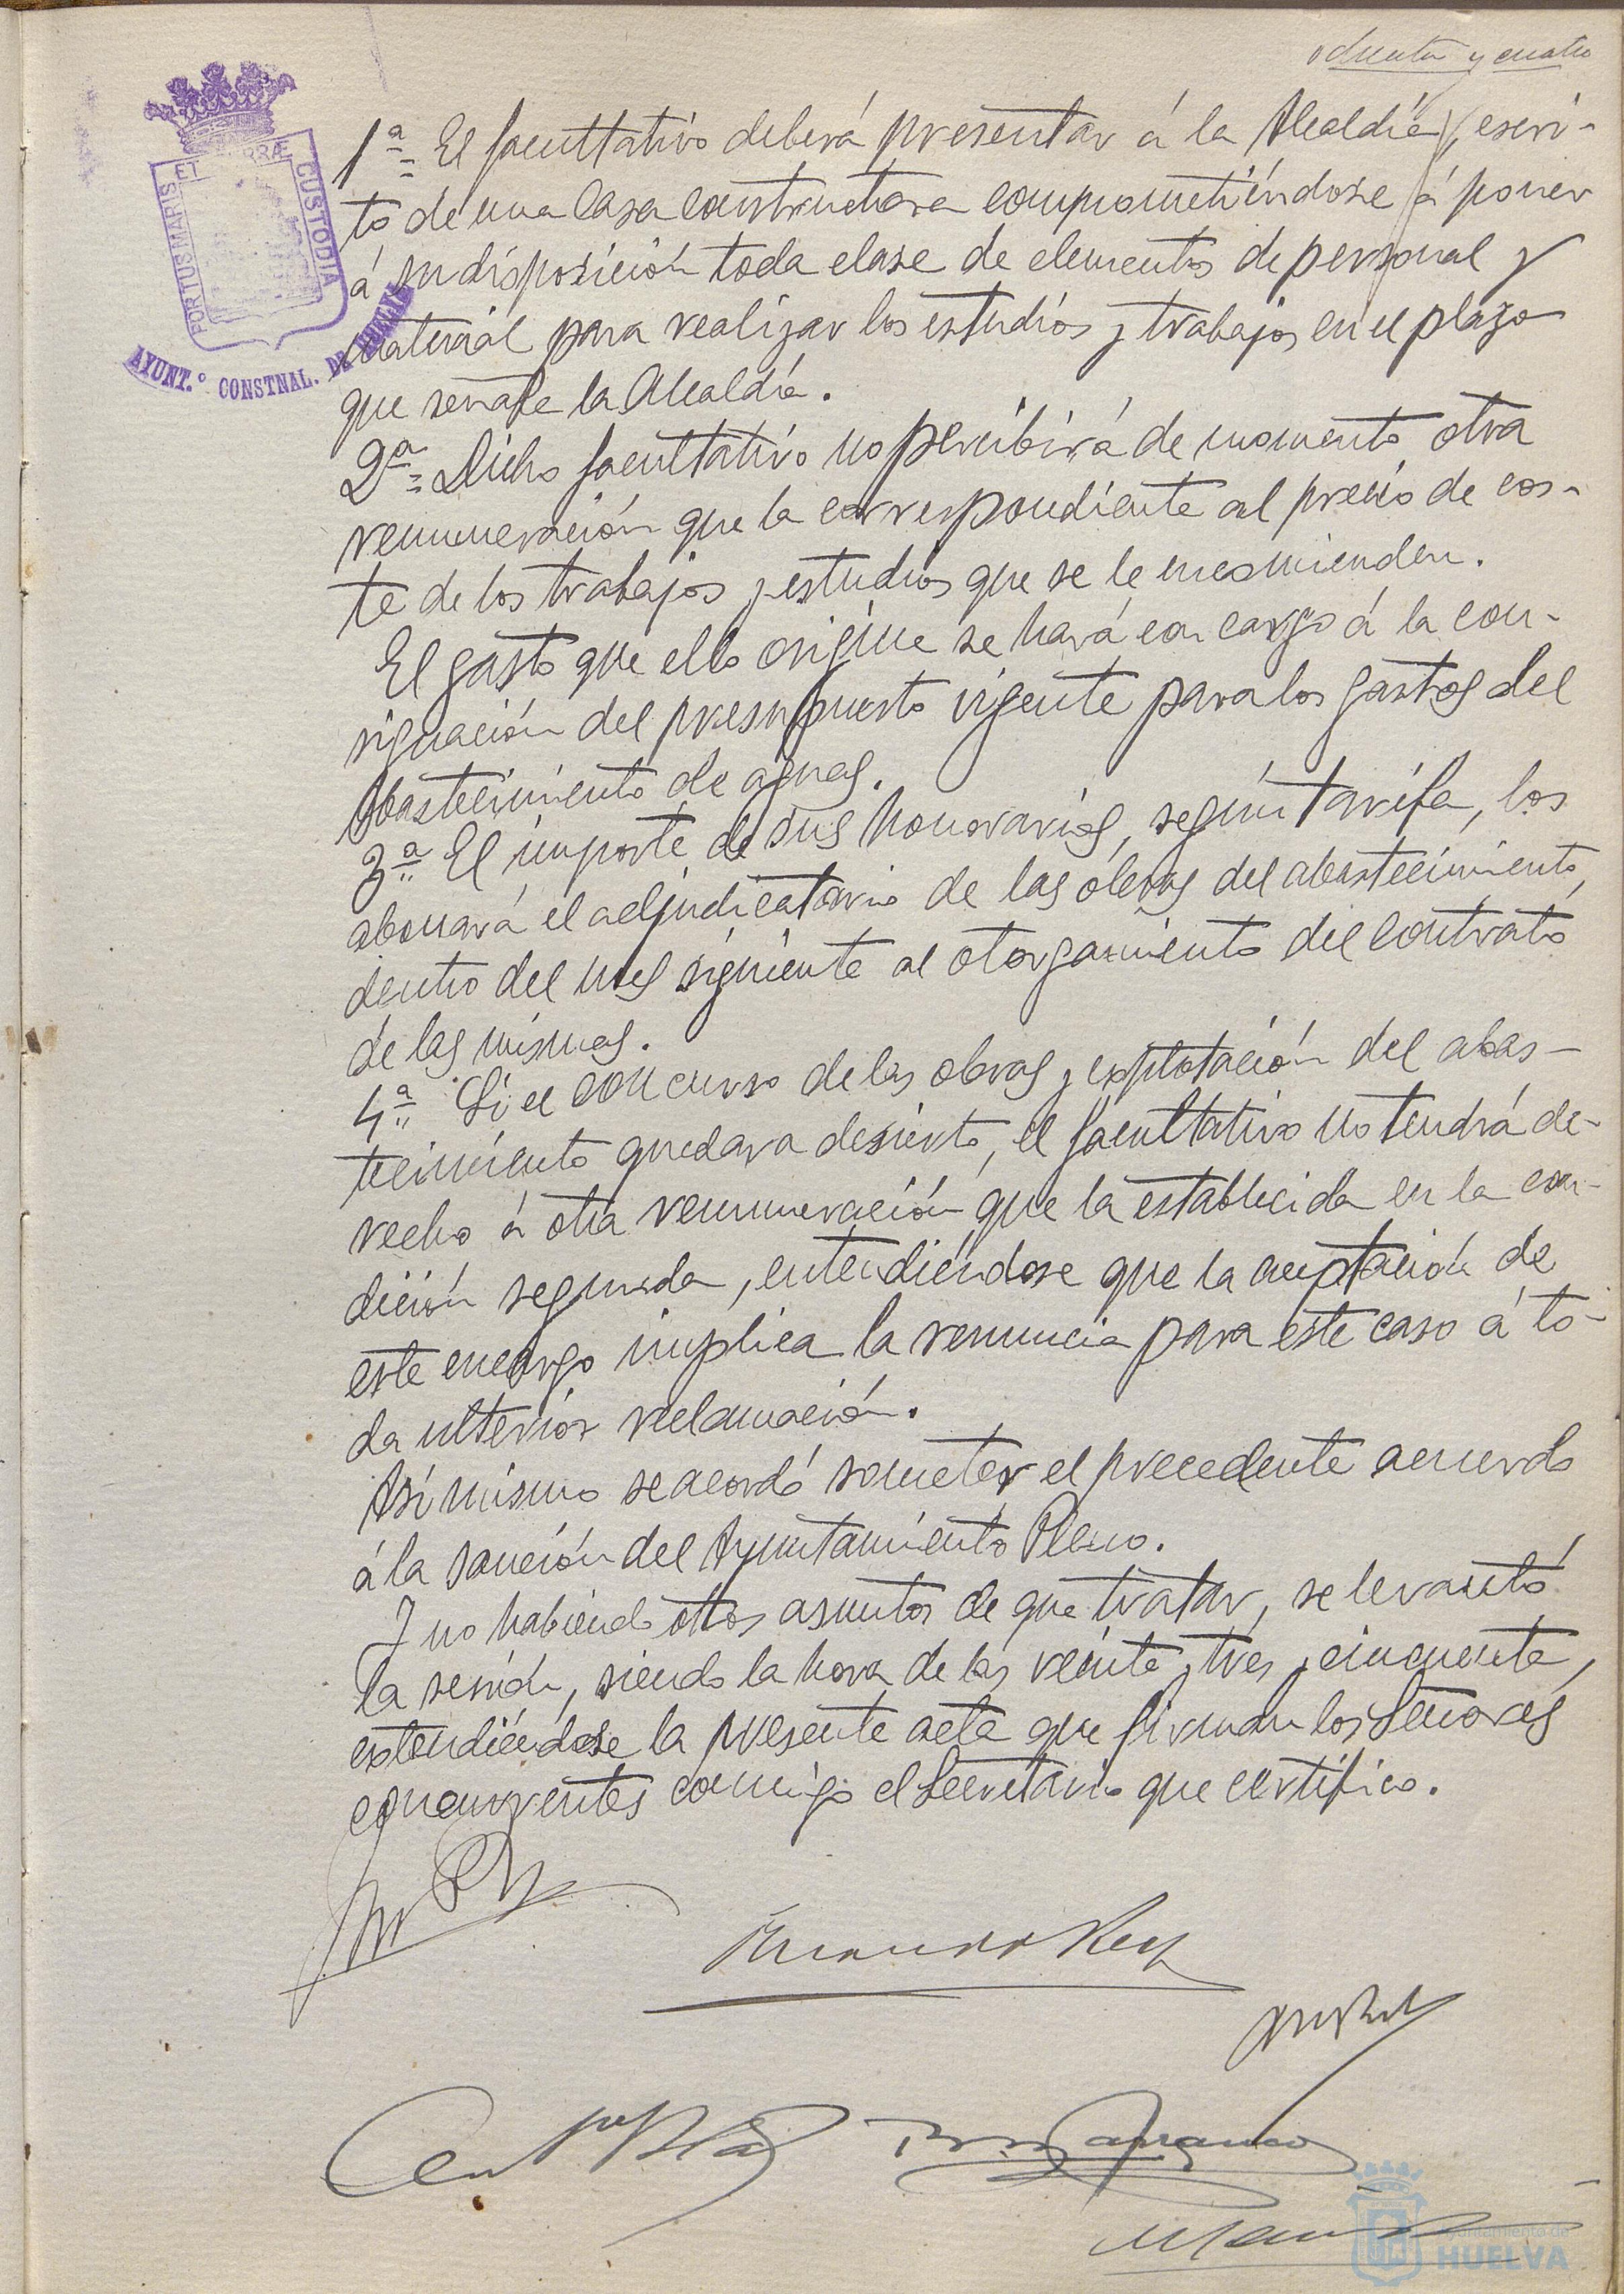 ochenta y cuatro
PORTUS MARIS ET TERRÆ CUSTODIA
AYUNT.º CONSTNAL. DE HUELVA
1ª= El facultativo deberá presentar á la Alcaldía, escri-
to de una Casa constructora comprometiéndose á poner
á su disposición toda clase de elementos de personal y
material para realizar los estudios y trabajos en el plazo
que señale la Alcaldía.
2ª= Dicho facultativo no percibirá de momento otra
remuneración que la correspondiente al precio de cos-
te de los trabajos y estudios que se le encomienden.
El gasto que ello origine se hará con cargo á la con-
signación del presupuesto vigente para los gastos del
Abastecimiento de aguas.
3ª= El importe de sus honorarios, según tarifa, los
abonará el adjudicatario de las obras del abastecimiento,
dentro del mes siguiente al otorgamiento del contrato
de las mismas.
4ª= Si el concurso de las obras y explotación del abas-
tecimiento quedara desierto, el facultativo no tendrá de-
recho á otra remuneración que la establecida en la con-
dición segunda, entendiéndose que la aceptación de
este encargo implica la renuncia para este caso á to-
da ulterior reclamación.
Asímismo se acordó someter el precedente acuerdo
á la sanción del Ayuntamiento Pleno.
Y no habiendo otros asuntos de que tratar, se levantó
la sesión, siendo la hora de las veinte y tres y cincuenta,
extendiéndose la presente acta que firman los Señores
concurrentes conmigo el Secretario que certifico.
Ayuntamiento de
HUELVA